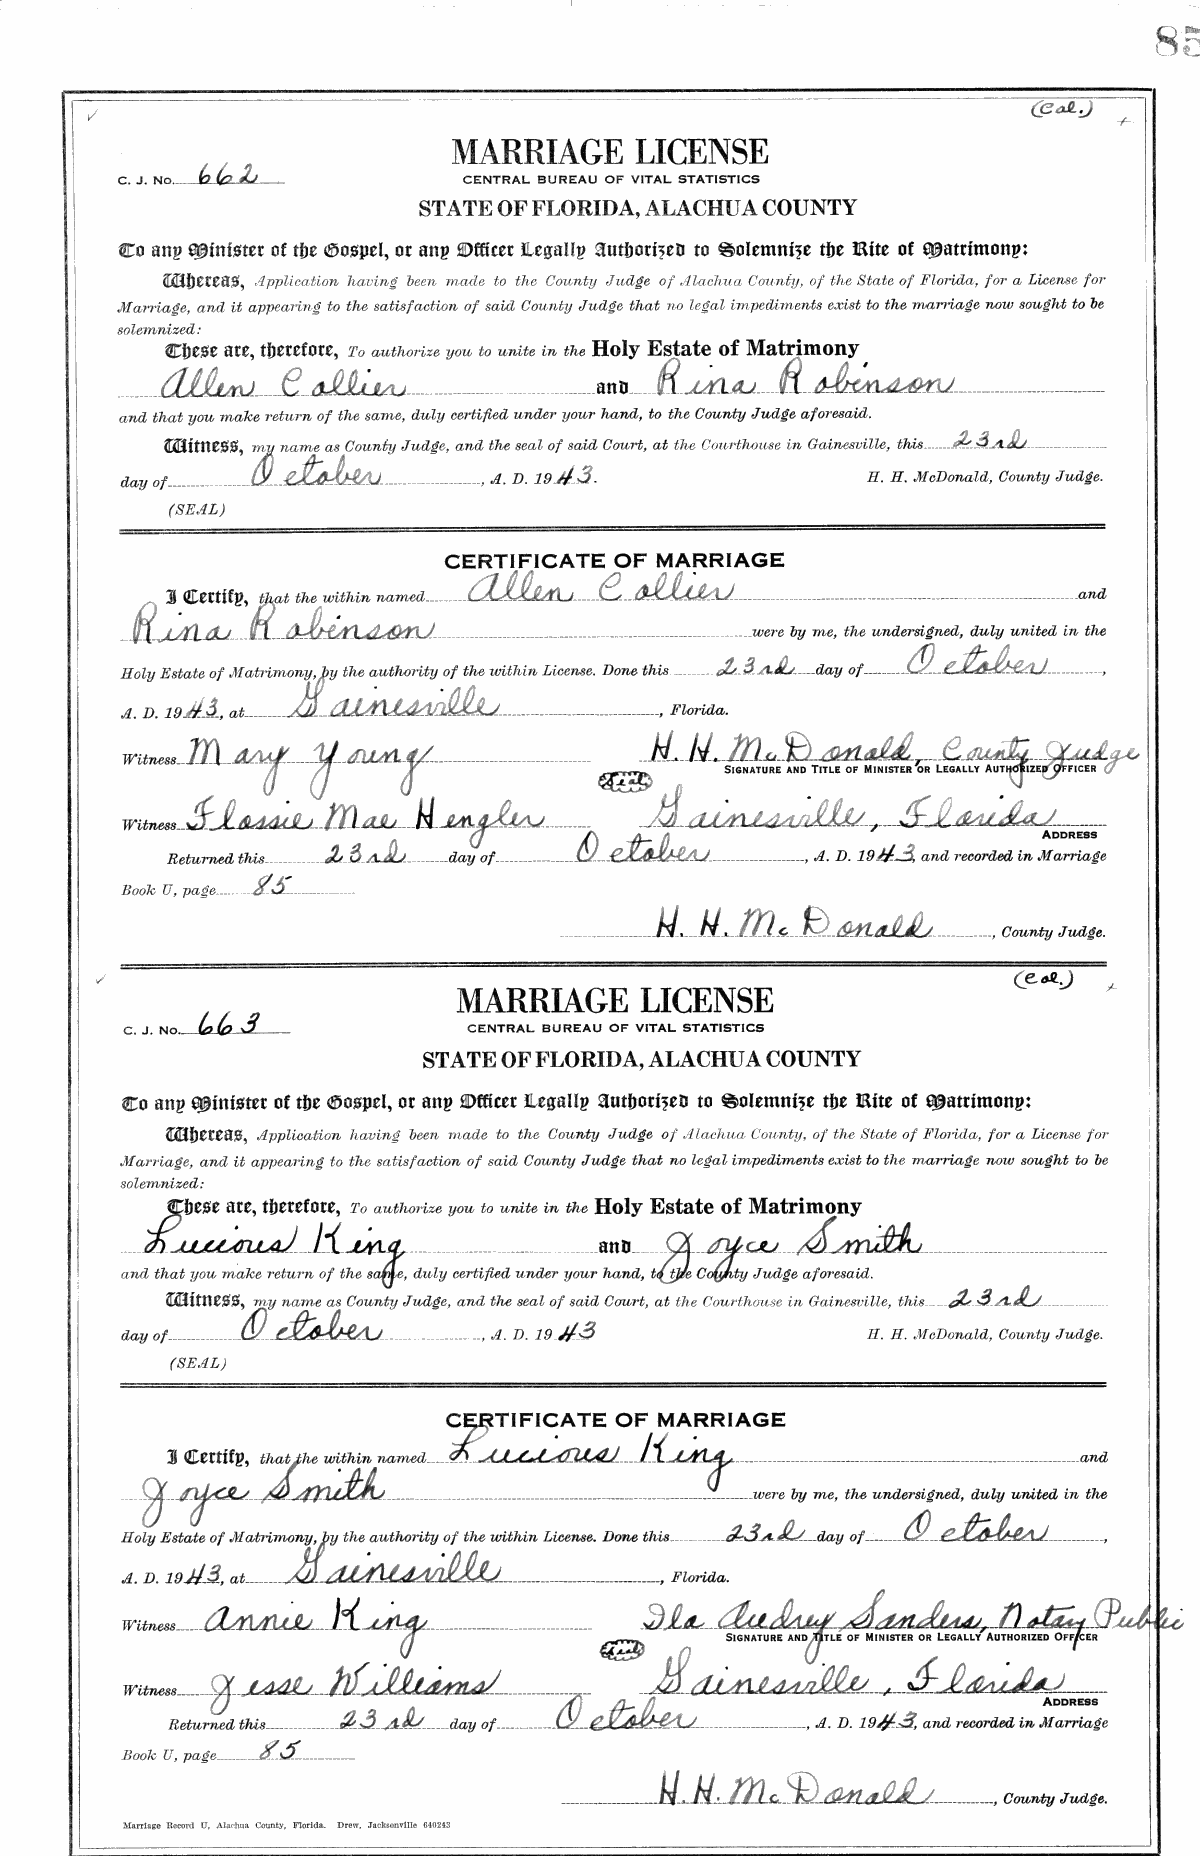 85
(Col.)
MARRIAGE LICENSE
C. J. No. 662
CENTRAL BUREAU OF VITAL STATISTICS
STATE OF FLORIDA, ALACHUA COUNTY
To any Minister of the Gospel, or any Officer Legally Authorized to Solemnize the Rite of Matrimony:
Whereas, Application having been made to the County Judge of Alachua County, of the State of Florida, for a License for
Marriage, and it appearing to the satisfaction of said County Judge that no legal impediments exist to the marriage now sought to be
solemnized:
These are, therefore, To authorize you to unite in the Holy Estate of Matrimony
Allen Collier and Rina Robinson
and that you make return of the same, duly certified under your hand, to the County Judge aforesaid.
Witness, my name as County Judge, and the seal of said Court, at the Courthouse in Gainesville, this 23rd
day of October, A. D. 1943. H. H. McDonald, County Judge.
(SEAL)
CERTIFICATE OF MARRIAGE
I Certify, that the within named Allen Collier and
Rina Robinson were by me, the undersigned, duly united in the
Holy Estate of Matrimony, by the authority of the within License. Done this 23rd day of October,
A. D. 1943, at Gainesville, Florida.
Witness Mary Young H. H. McDonald, County Judge
Seal SIGNATURE AND TITLE OF MINISTER OR LEGALLY AUTHORIZED OFFICER
Witness Flossie Mae Hengler Gainesville, Florida
ADDRESS
Returned this 23rd day of October, A. D. 1943, and recorded in Marriage
Book U, page 85
H. H. McDonald, County Judge.
(Col.)
MARRIAGE LICENSE
C. J. No. 663
CENTRAL BUREAU OF VITAL STATISTICS
STATE OF FLORIDA, ALACHUA COUNTY
To any Minister of the Gospel, or any Officer Legally Authorized to Solemnize the Rite of Matrimony:
Whereas, Application having been made to the County Judge of Alachua County, of the State of Florida, for a License for
Marriage, and it appearing to the satisfaction of said County Judge that no legal impediments exist to the marriage now sought to be
solemnized:
These are, therefore, To authorize you to unite in the Holy Estate of Matrimony
Lucious King and Joyce Smith
and that you make return of the same, duly certified under your hand, to the County Judge aforesaid.
Witness, my name as County Judge, and the seal of said Court, at the Courthouse in Gainesville, this 23rd
day of October, A. D. 1943 H. H. McDonald, County Judge.
(SEAL)
CERTIFICATE OF MARRIAGE
I Certify, that the within named Lucious King and
Joyce Smith were by me, the undersigned, duly united in the
Holy Estate of Matrimony, by the authority of the within License. Done this 23rd day of October,
A. D. 1943, at Gainesville, Florida.
Witness Annie King Ila Audrey Sanders, Notary Public
Seal SIGNATURE AND TITLE OF MINISTER OR LEGALLY AUTHORIZED OFFICER
Witness Jesse Williams Gainesville, Florida
ADDRESS
Returned this 23rd day of October, A. D. 1943, and recorded in Marriage
Book U, page 85
H. H. McDonald, County Judge.
Marriage Record U, Alachua County, Florida. Drew, Jacksonville 640243